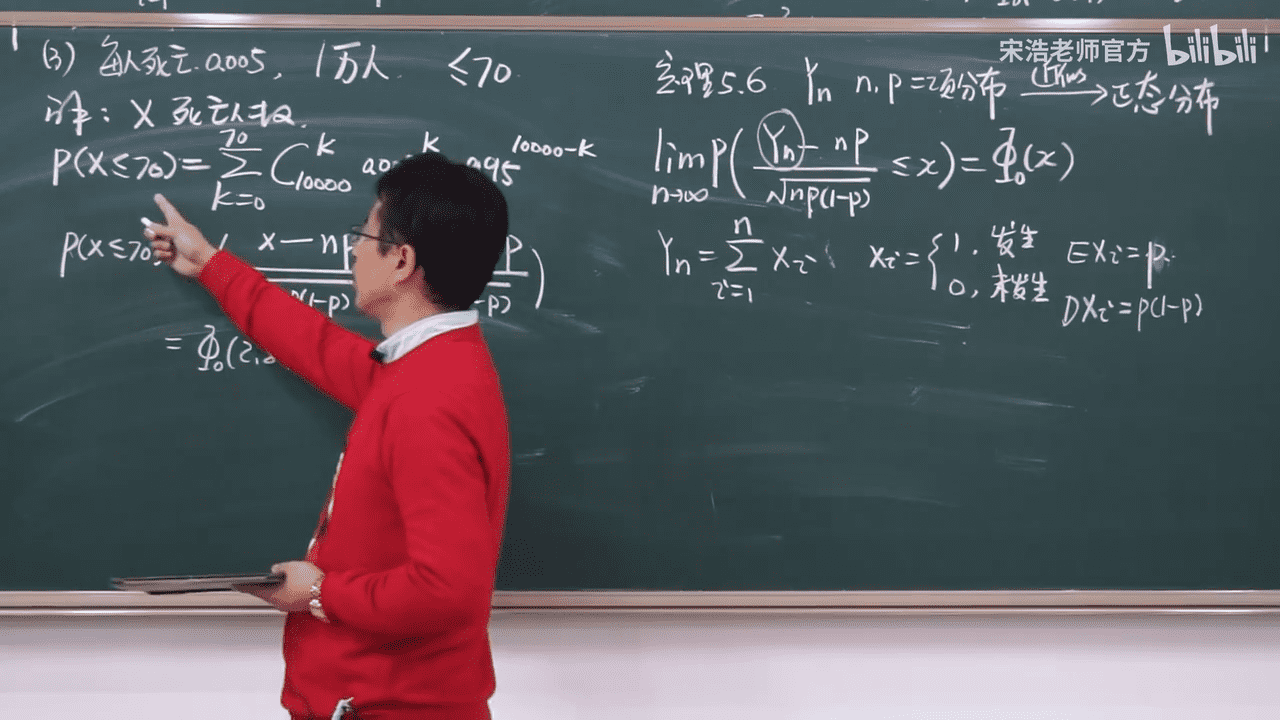 宋浩老师官方 bilibili
(3) 每人死亡 0.005, 1万人. ≤70.
解: X 死亡人数.
P(X≤70)=∑_{k=0}^{70} C_{10000}^{k} 0.995^{10000-k}
P(X≤70) X-np
=Φ₀(2.
定理5.6 Yn n,p 二项分布 → 正态分布
lim_{n→∞} P( (Yn-np)/√(np(1-p)) ≤x)=Φ₀(x)
Yn=∑_{i=1}^{n} Xi Xi={1, 发生 EXi=p
0, 未发生 DXi=p(1-p)